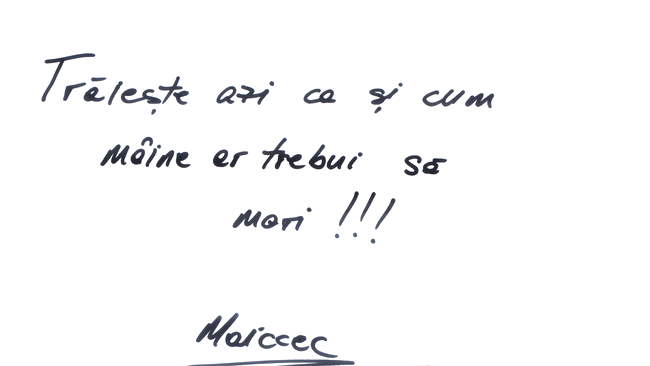 Trăiește azi ca și cum
mâine ar trebui să
mori !!!
Maiccec